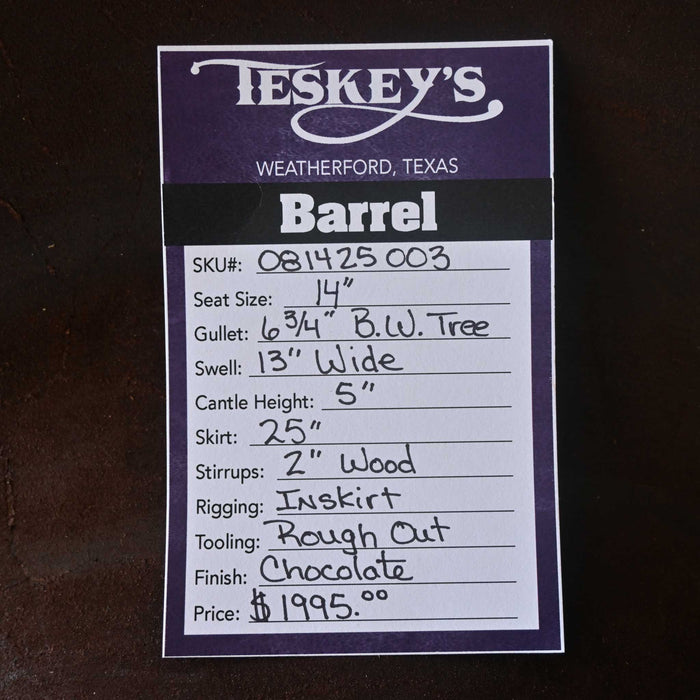 TESKEY'S
WEATHERFORD, TEXAS
Barrel
SKU#: 081425 003
Seat Size: 14"
Gullet: 6 3/4" B.W. Tree
Swell: 13" Wide
Cantle Height: 5"
Skirt: 25"
Stirrups: 2" Wood
Rigging: Inskirt
Tooling: Rough Out
Finish: Chocolate
Price: $1995.00